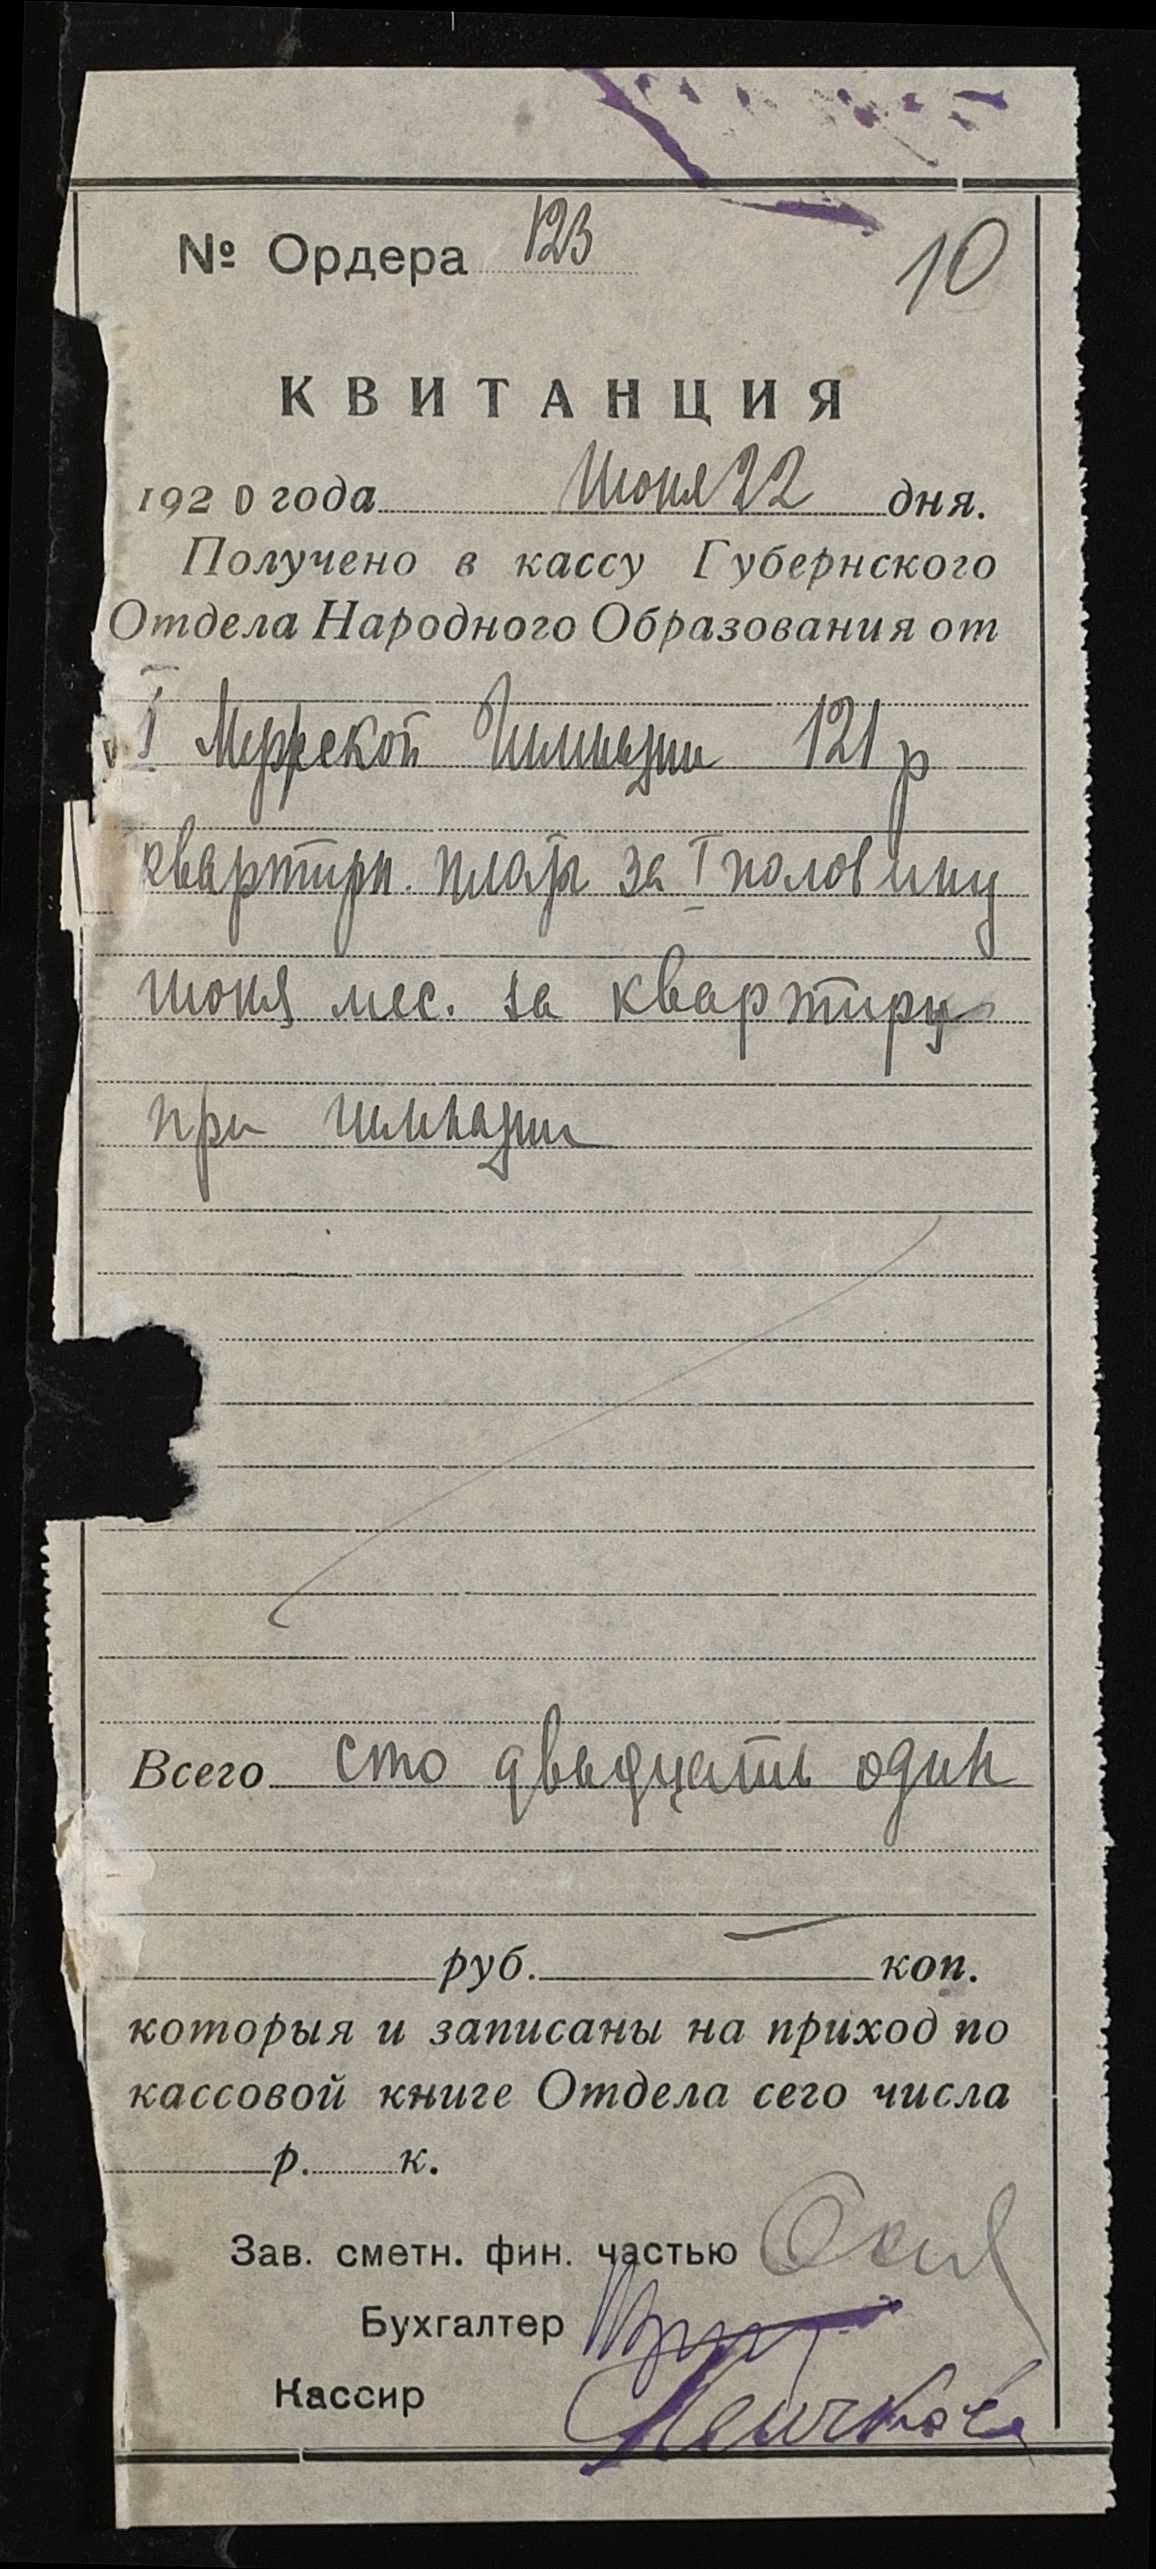 № Ордера 123
10
КВИТАНЦИЯ
1920 года Июня 22 дня.
Получено в кассу Губернского
Отдела Народного Образования от
I Мужской Гимназии 121 р
квартирн. платы за I половину
июня мес. за квартиру
при гимназии
Всего сто двадцать один
руб. — коп.
которыя и записаны на приход по
кассовой книге Отдела сего числа
р. к.
Зав. сметн. фин. частью
Бухгалтер
Кассир